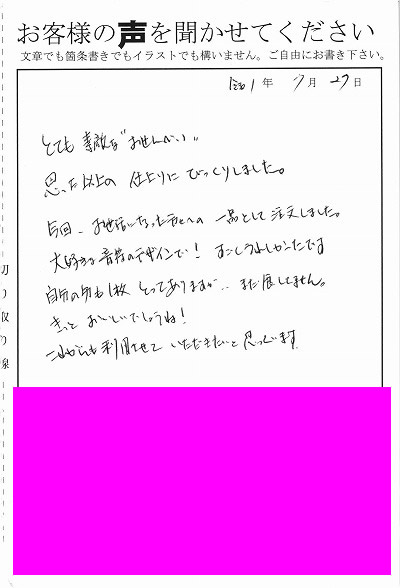 お客様の声を聞かせてください
文章でも箇条書きでもイラストでも構いません。ご自由にお書き下さい。
1年 7月27日
とても 素敵な"おせんべい"
思った以上の 仕上りに びっくりしました。
今回、お世話になった方々への 一品として 注文しました。
大好きな 音符のデザインで! すごくうれしかったです
自分の分も1枚 とってありますが、まだ 食してません。
きっと おいしいでしょうね!
これからも利用させて いただきたいと思っています
切り取り線